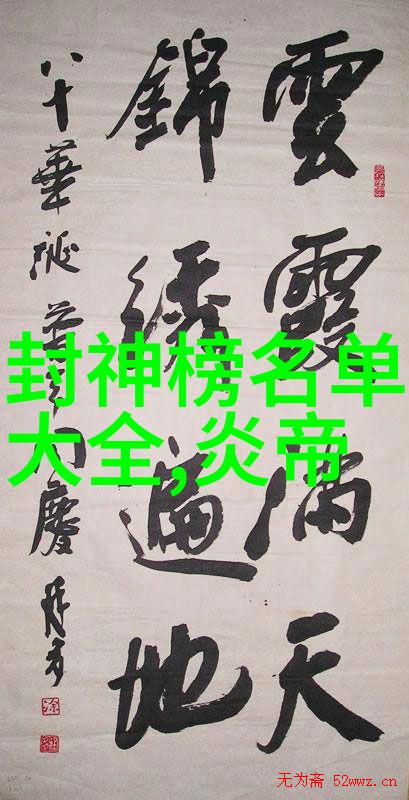 雲霞滿天
錦繡遍地
八十華誕普天同慶
封神榜名单
大全,炎帝
无为斋 52wwz.cn